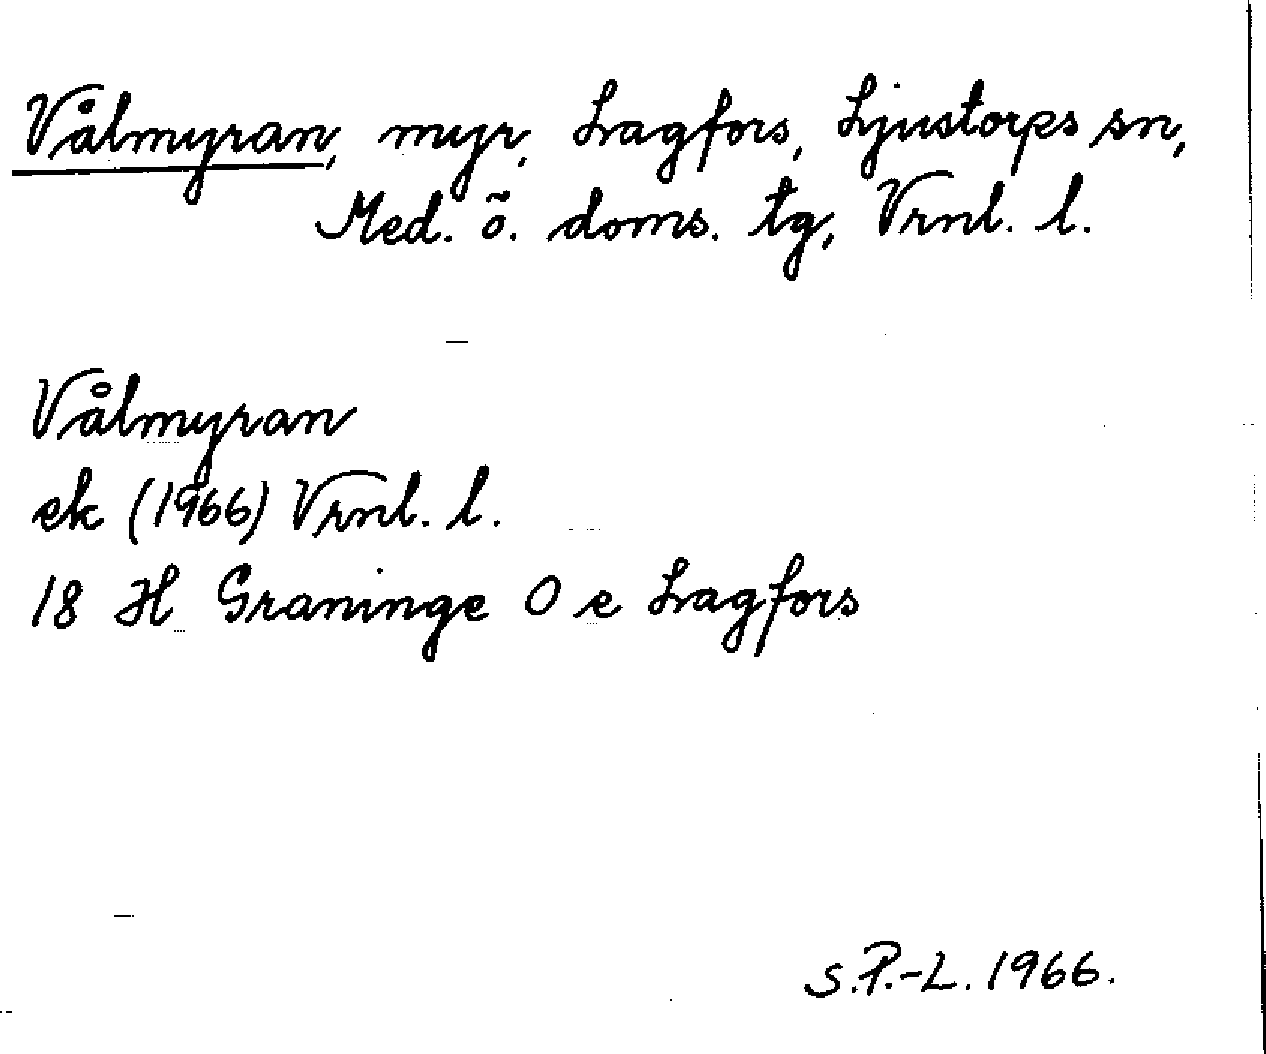 Vålmyran, myr, Lagfors, Ljustorps sn,
Med. ö. doms. tg, Vrnl. l.
Vålmyran
ek (1966) Vrnl. l.
18 H Graninge O e Lagfors
S.P.-L. 1966.